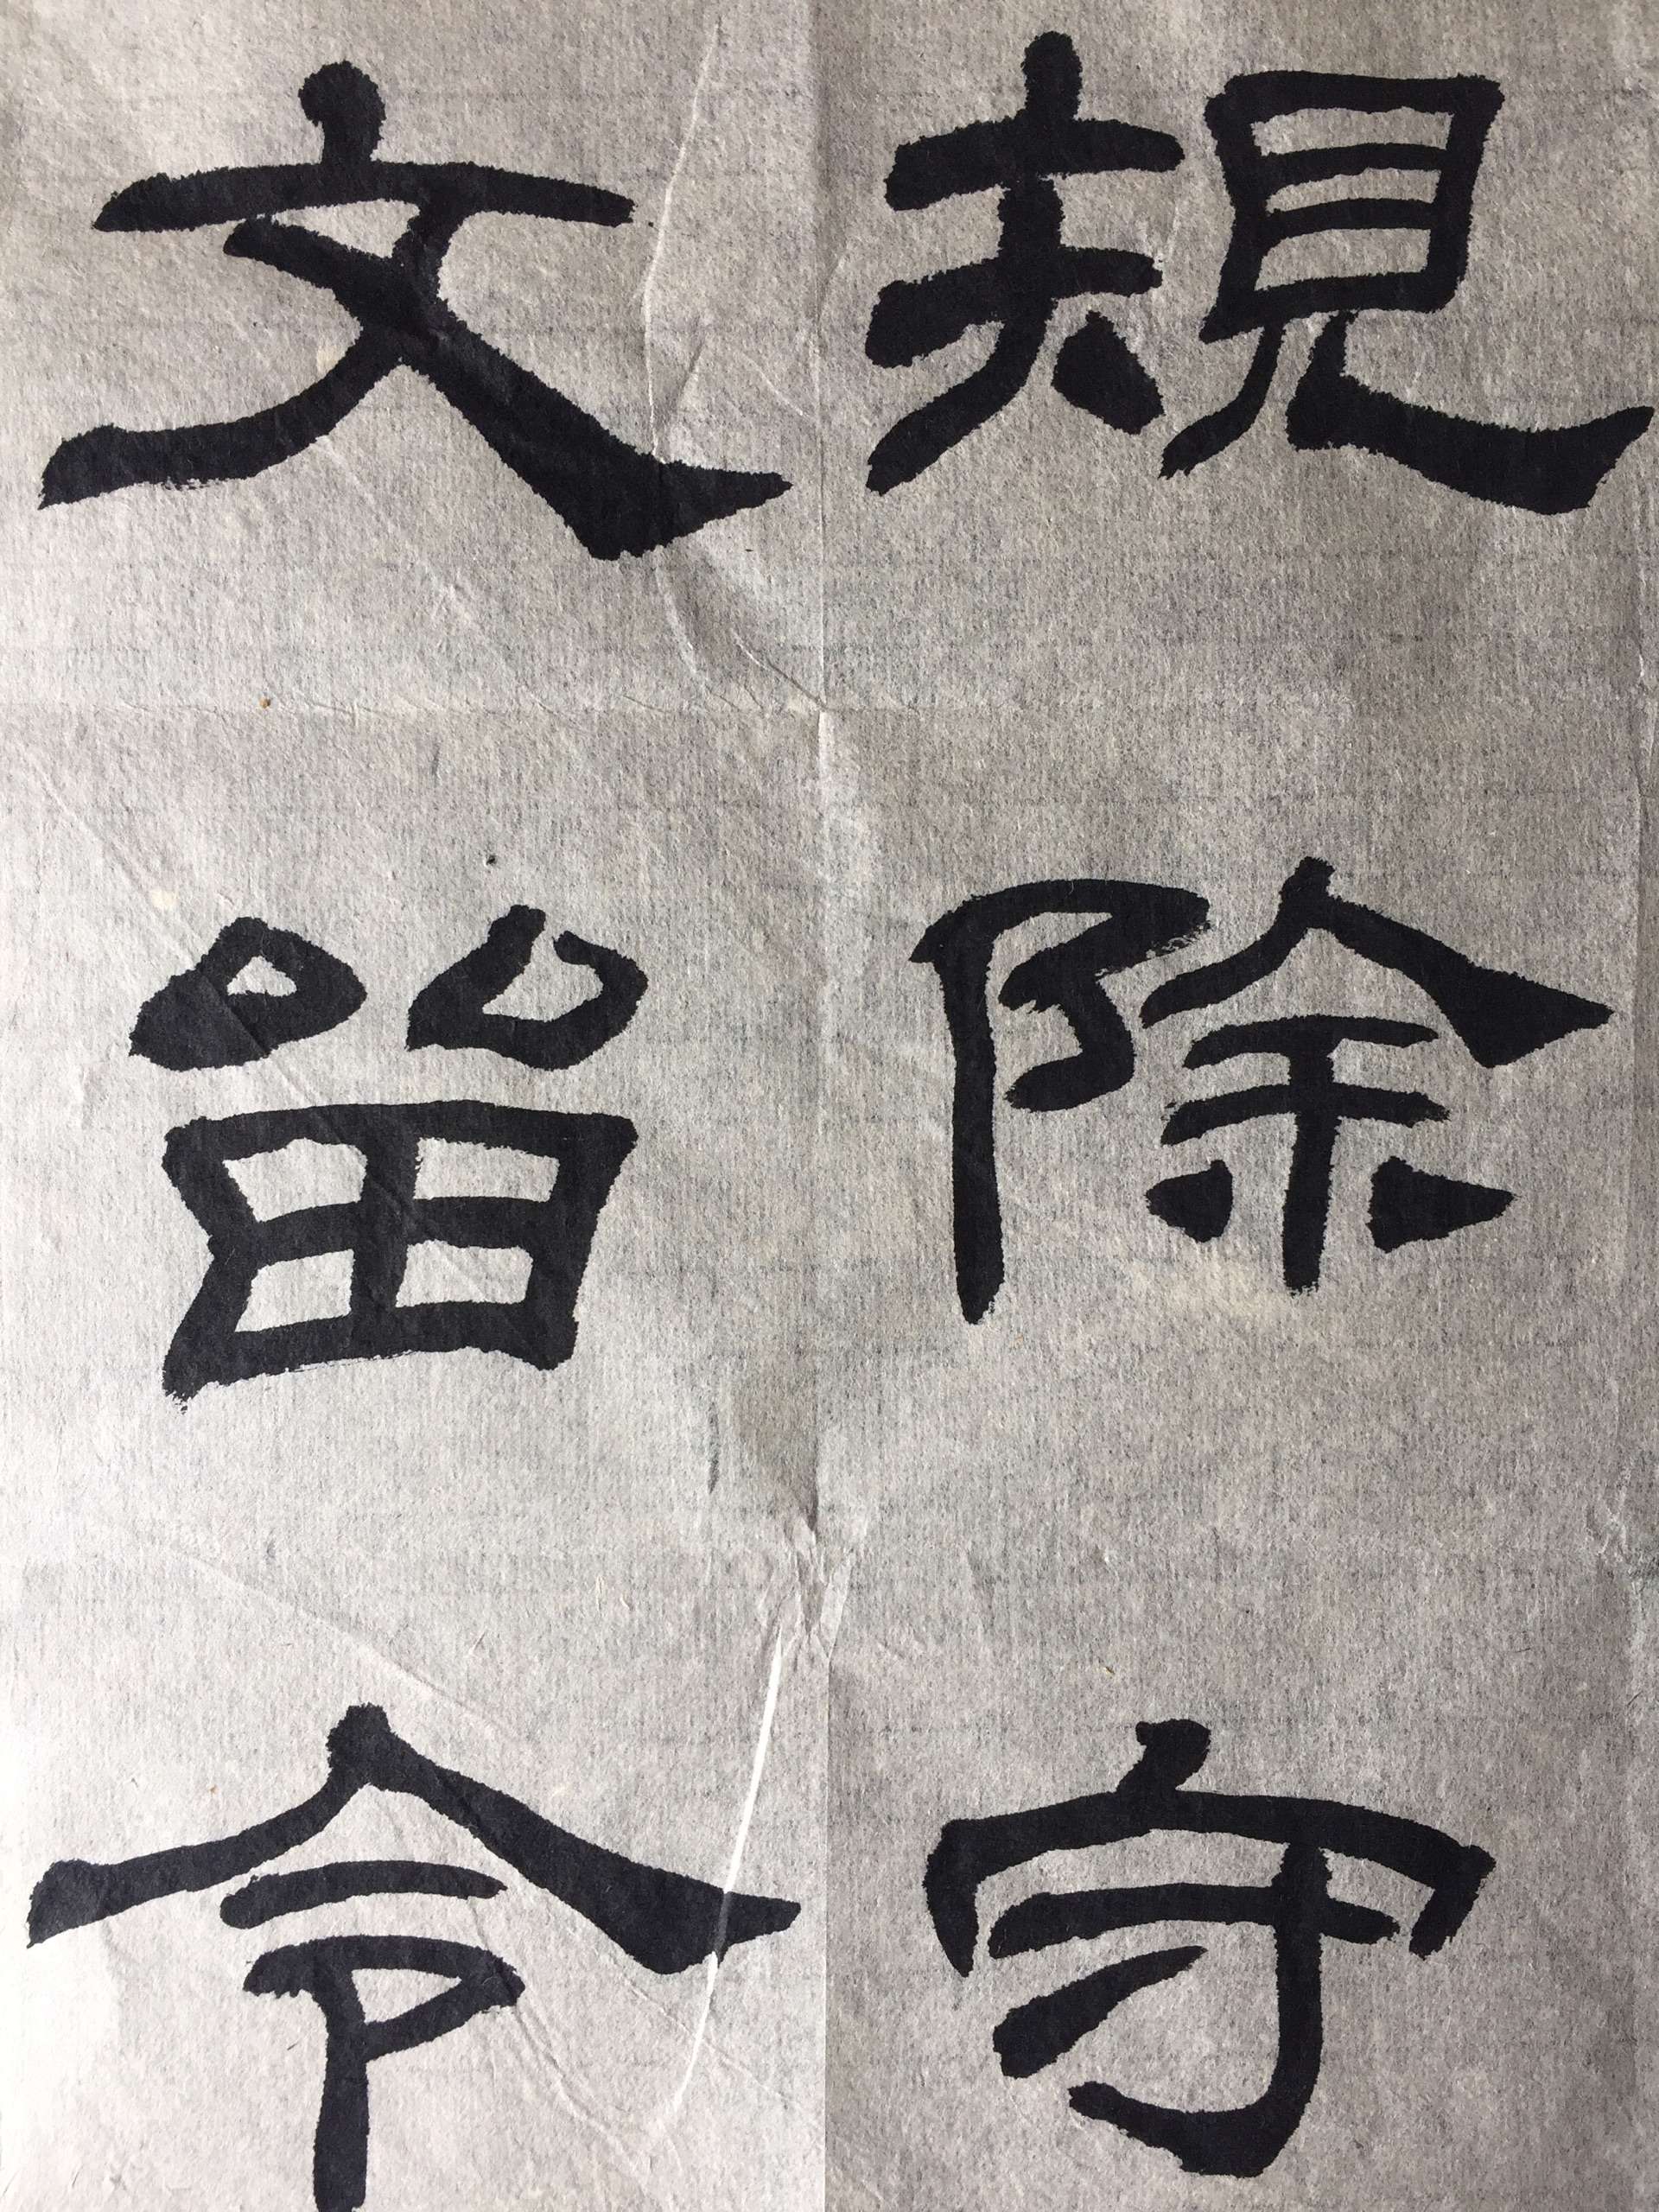 規除守
文畱令